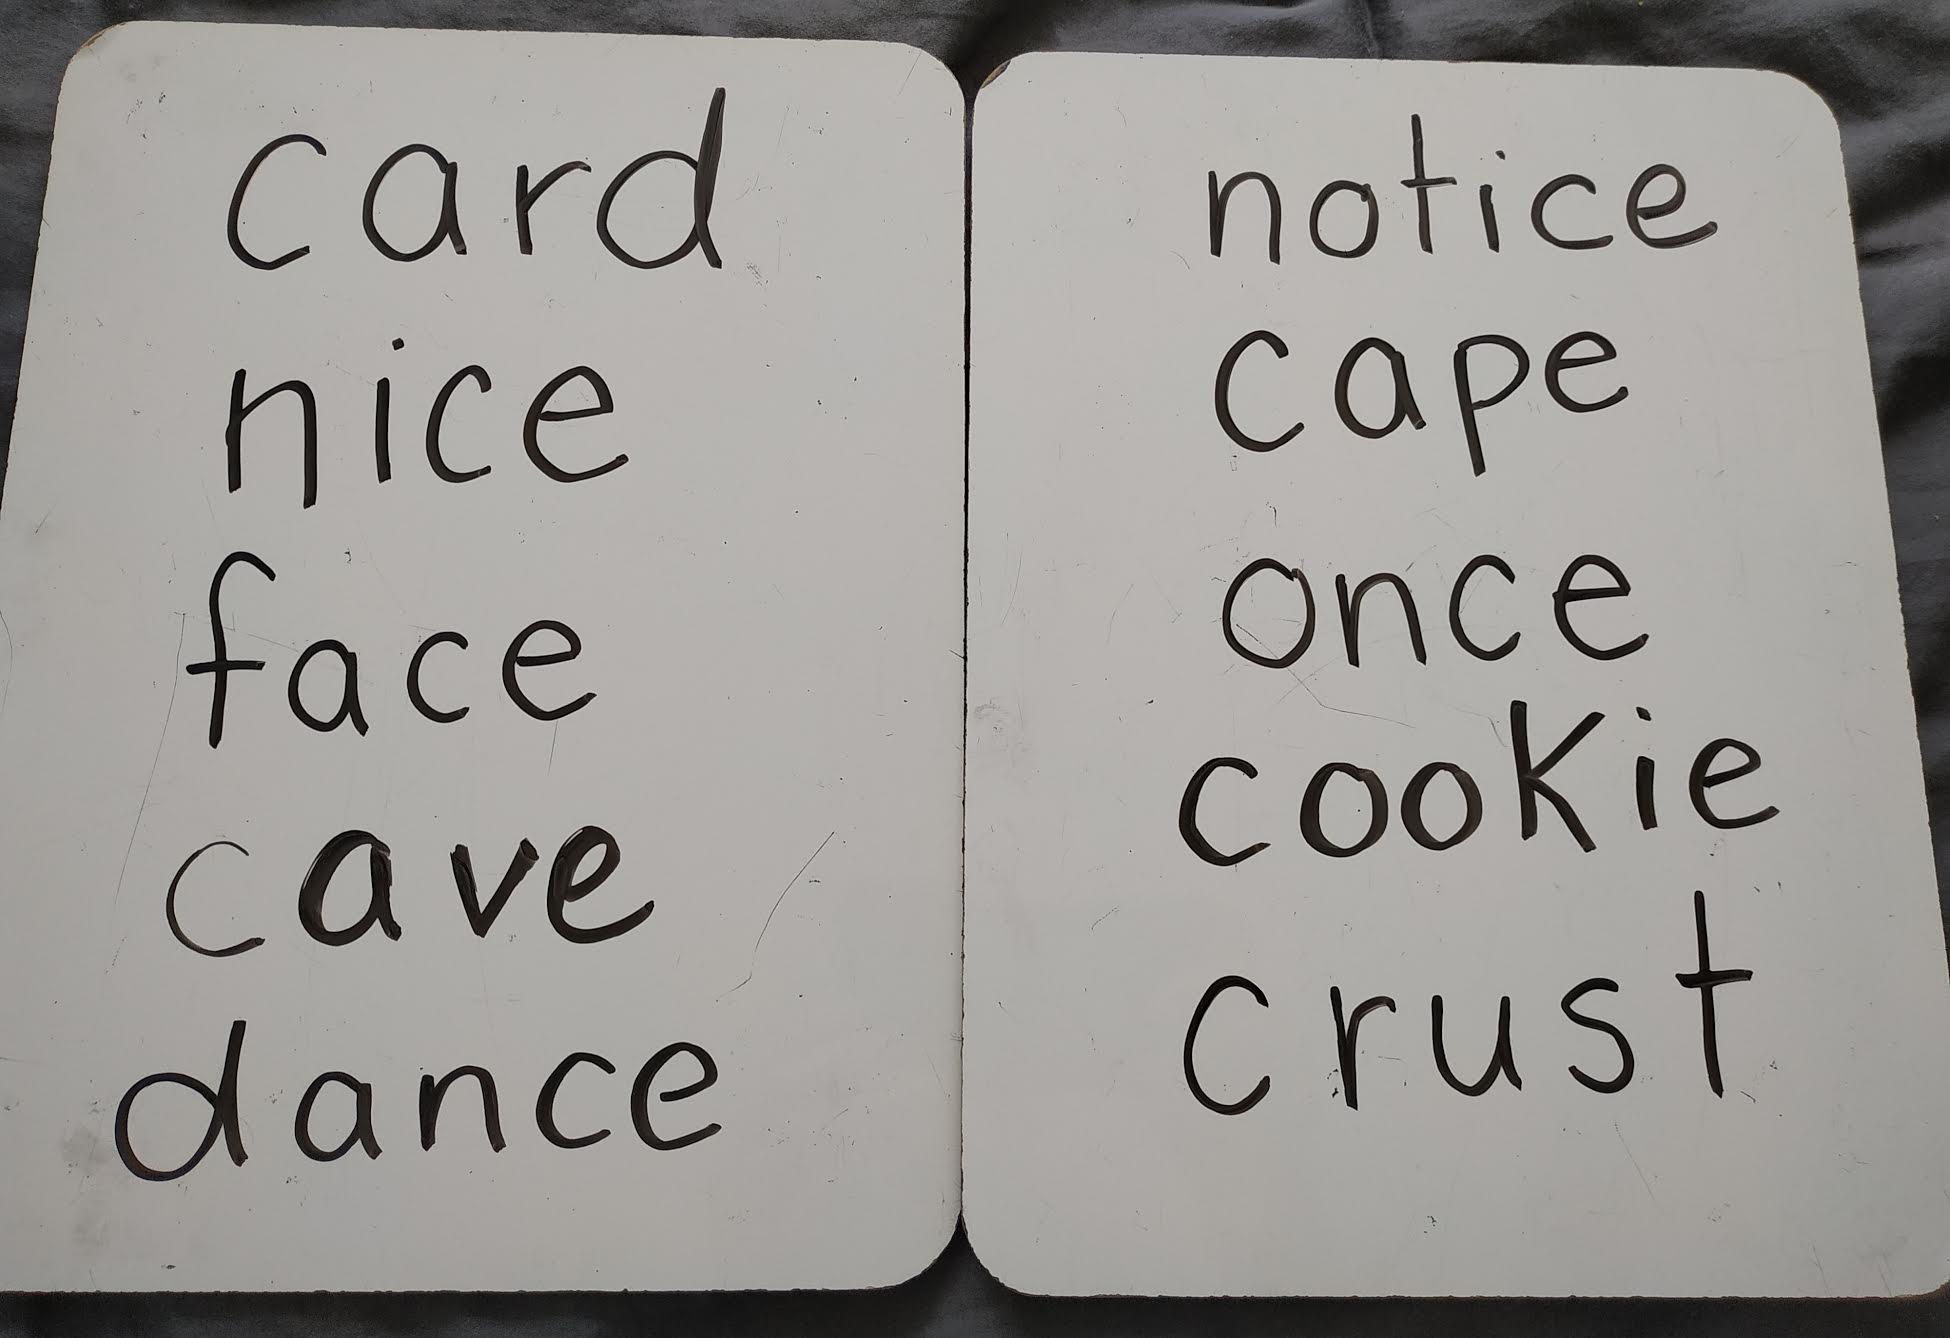 card
nice
face
cave
dance
notice
cape
once
cookie
crust